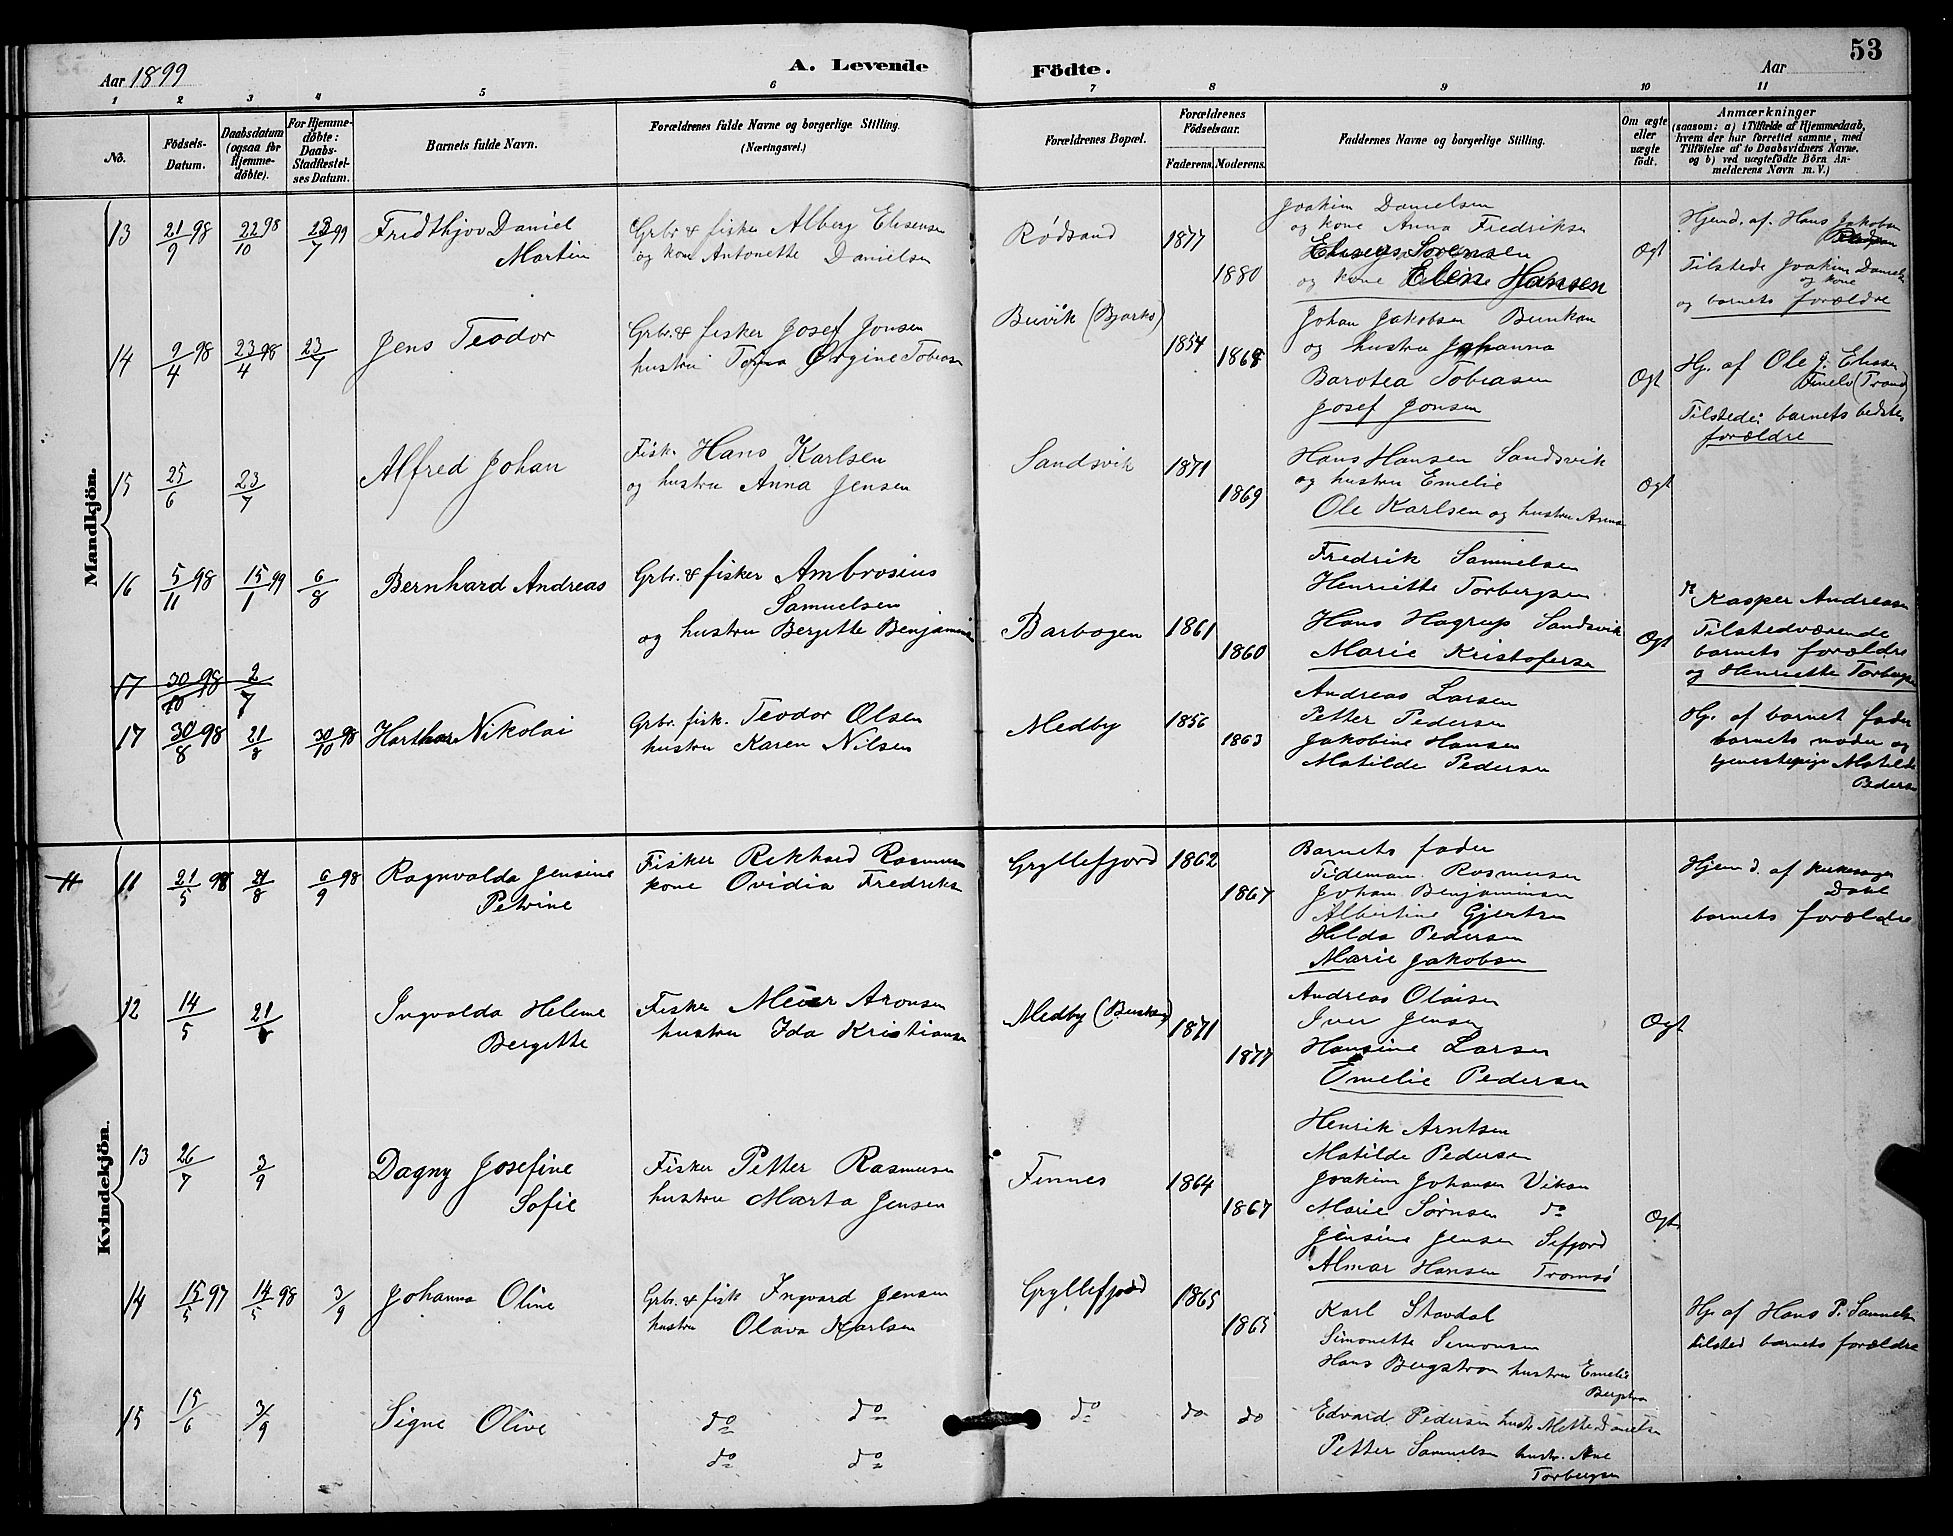 53
Aar 1899
A. Levende Födte.
Aar
1 2 3 4 5 6 7 8 9 10 11
No.
Födsels-Datum.
Daabsdatum (ogsaa for Hjemme-döbte).
For Hjemme-döbte: Daabs-Stadfæstel-ses Datum.
Barnets fulde Navn.
Forældrenes fulde Navne og borgerlige Stilling. (Næringsvei.)
Forældrenes Bopæl.
Forældrenes Födselsaar.
Faderens. Moderens.
Faddernes Navne og borgerlige Stilling.
Om ægte eller uægte födt.
Anmærkninger
(saasom: a) i Tilfælde af Hjemmedaab, hvem der har forrettet samme, med Tilföielse af to Daabsvidners Navne, og b) ved uægtefödte Börn An-melderens Navn m. V.)
Mandkjön.
13 21/9 98 22/10 98 23/7 99 Fridthjov Daniel Martin
Grbr. & fisker Alberg Elisensen
og kone Antonette Danielsen
Rødsand 1877 1880
Joakim Danielsen
og kone Anna Fredriksen
Eliseus Sørensen
og kone Elen Hansen
Ægt
Hjemd. af. Hans Jakobsen
Tilstede Joakim Daniels
og kone
og barnets forældre
14 9/4 98 23/4 98 23/7 Jens Teodor
Grbr. & fisker Josef Jonsen
hustru Orgine Tobiasen
Buvik (Bjarkø) 1854 1868
Johan Jakobsen Bunkan
og hustru Johanna
Barotea Tobiasen
Josef Jonsen
Ægt
Hj. af Ole J. Eliesen
(Trand)
Tilstede: barnets bedste-
forældre
15 25/6 23/7 Alfred Johan
Fisk. Hans Karlsen
og hustru Anna Jensen
Sandsvik 1871 1869
Hans Hansen Sandsvik
og hustru Emelie
Ole Karlsen og hustru Anna
Ægt
16 5/11 98 15/1 99 6/8 Bernhard Andreas
Grbr. & fisker Ambrosius
Samuelsen
og hustru Bergitte Benjaminsen
Barbogen 1861 1860
Fredrik Samuelsen
Henriette Torbergsen
Hans Hagrup Sandsvik
Marie Kristofersen
Ægt
Kasper Andreasen
Tilstedværende
barnets forældre
og Henriette Torbergsen
17 30/10 98 2/7
17 30/8 98 21/8 30/10 98 Nikolai
Grbr. fisk. Teodor Olsen
hustru Karen Nilsen
Medby 1856 1863
Andreas Larsen
Petter Pedersen
Jakobine Hansen
Matilde Pedersen
Hj. af barnet fader
barnets moder og
tjenestepige Matilde
Pedersen
Kvindekjön.
11 11 21/5 98 21/8 6/9 98 Ragnvalda Jensine
Petrine
Fisker Rikhard Rasmusen
kone Ovidia Fredriksen
Gryllefjord 1862 1867
Barnets fader
Tideman Rasmusen
Johan Benjaminsen
Albertine Gjertsen
Hilda Pedersen
Marie Jakobsen
Hjemd. af kirkesanger
barnets forældre
12 14/5 21/8 Ingvalda Helene
Bergitte
Fisker Meier Aronsen
hustru Ida Kristiansen
Medby 1871 1877
Andreas Olaisen
Iver Jensen
Hansine Larsen
Emelie Pedersen
Ægt
13 26/7 3/9 Dagny Josefine
Sofie
Fisker Petter Rasmusen
hustru Marta Jensen
Finnes 1864 1867
Henrik Arntsen
Matilde Pedersen
Joakim Johansen Viken
Marie Sørnsen do
Jensine Jensen Sifjord
Almar Hansen Tromsø
Ægt
14 15/5 97 14/5 98 3/9 Johanna Oline
Grbr. & fisk Ingvard Jensen
hustru Olava Karlsen
Gryllefjord 1865 1865
Karl Stavdal
Simonette Simonsen
Hans Bergstrøm hustru Emelie
Bergstrøm
Hj. af Hans P. Samuelsen
tilsted barnets forældre
15 15/6 3/9 Signe Olive
do do
do do
do do do
Edvard Pedersen hustr. Mette Danielsen
Petter Samuelsen hustr. Ane
Torbergsen